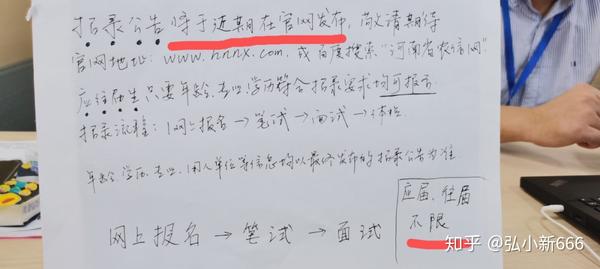 招录公告将于近期在官网发布，敬请期待
官网地址：www.hnnx.com，或百度搜索“河南省农信网”
应往届生只要年龄、专业、学历符合招录要求均可报名
招录流程：网上报名→笔试→面试→体检
年龄、学历、专业、用人单位等信息均以最终发布的招录公告为准
网上报名→笔试→面试
应届、往届
不限
知乎 @弘小新666